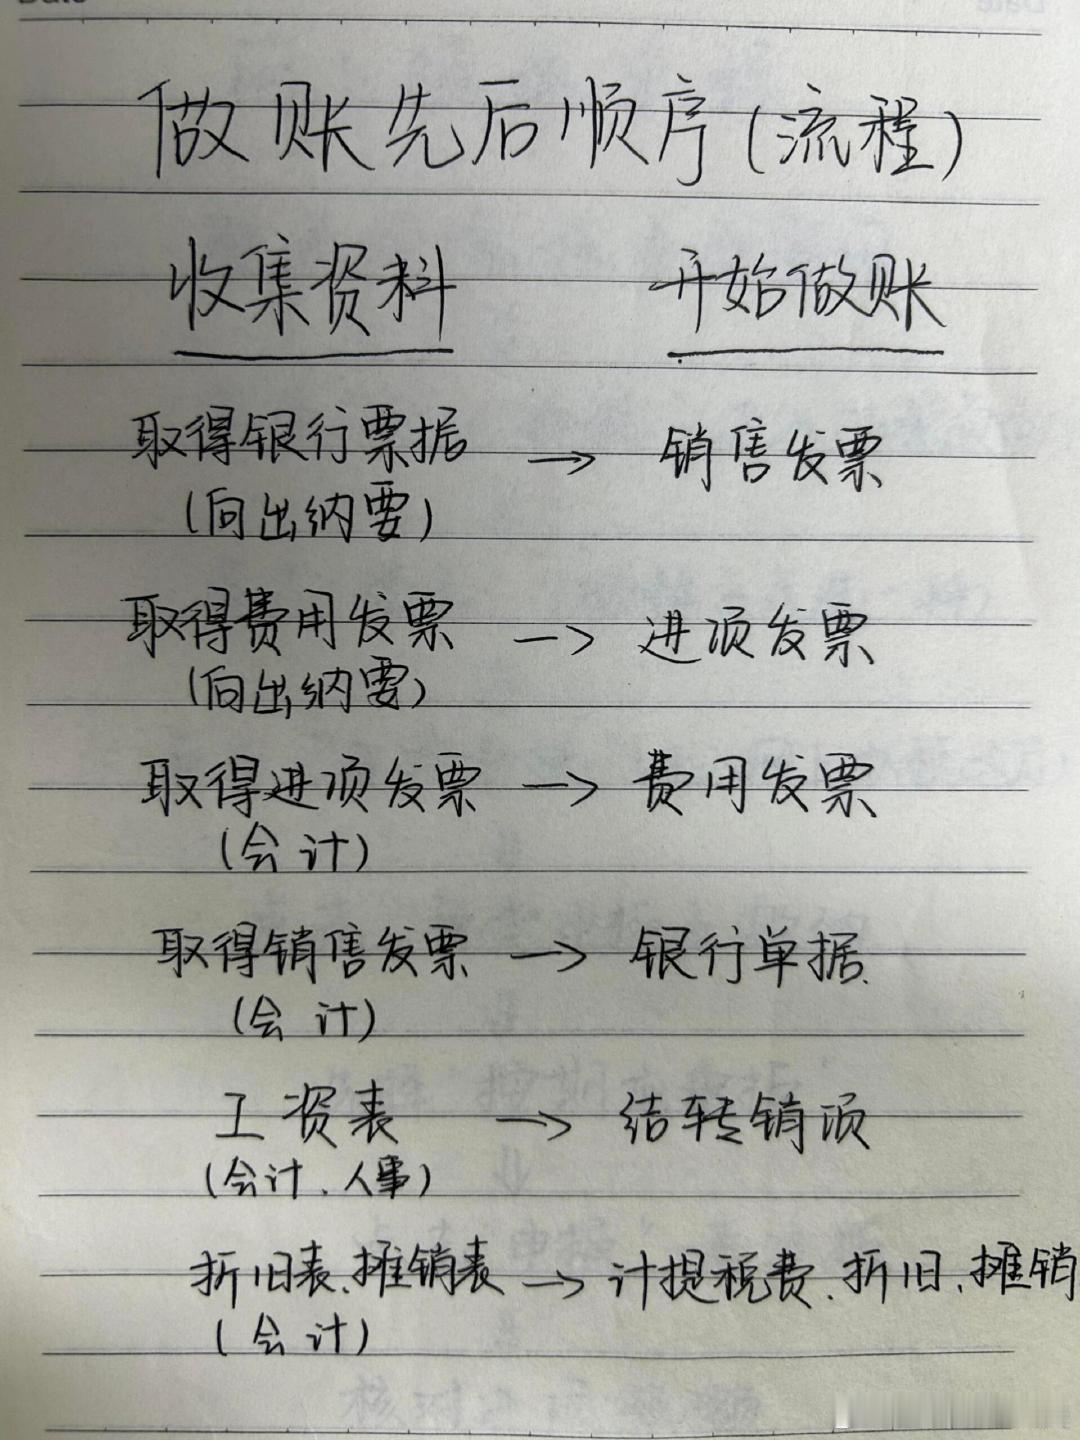 做账先后顺序(流程)
收集资料 开始做账
取得银行票据 → 销售发票
(向出纳要)
取得费用发票 → 进项发票
(向出纳要)
取得进项发票 → 费用发票
(会计)
取得销售发票 → 银行单据
(会计)
工资表 → 结转销项
(会计、人事)
折旧表、摊销表 → 计提税费、折旧、摊销
(会计)